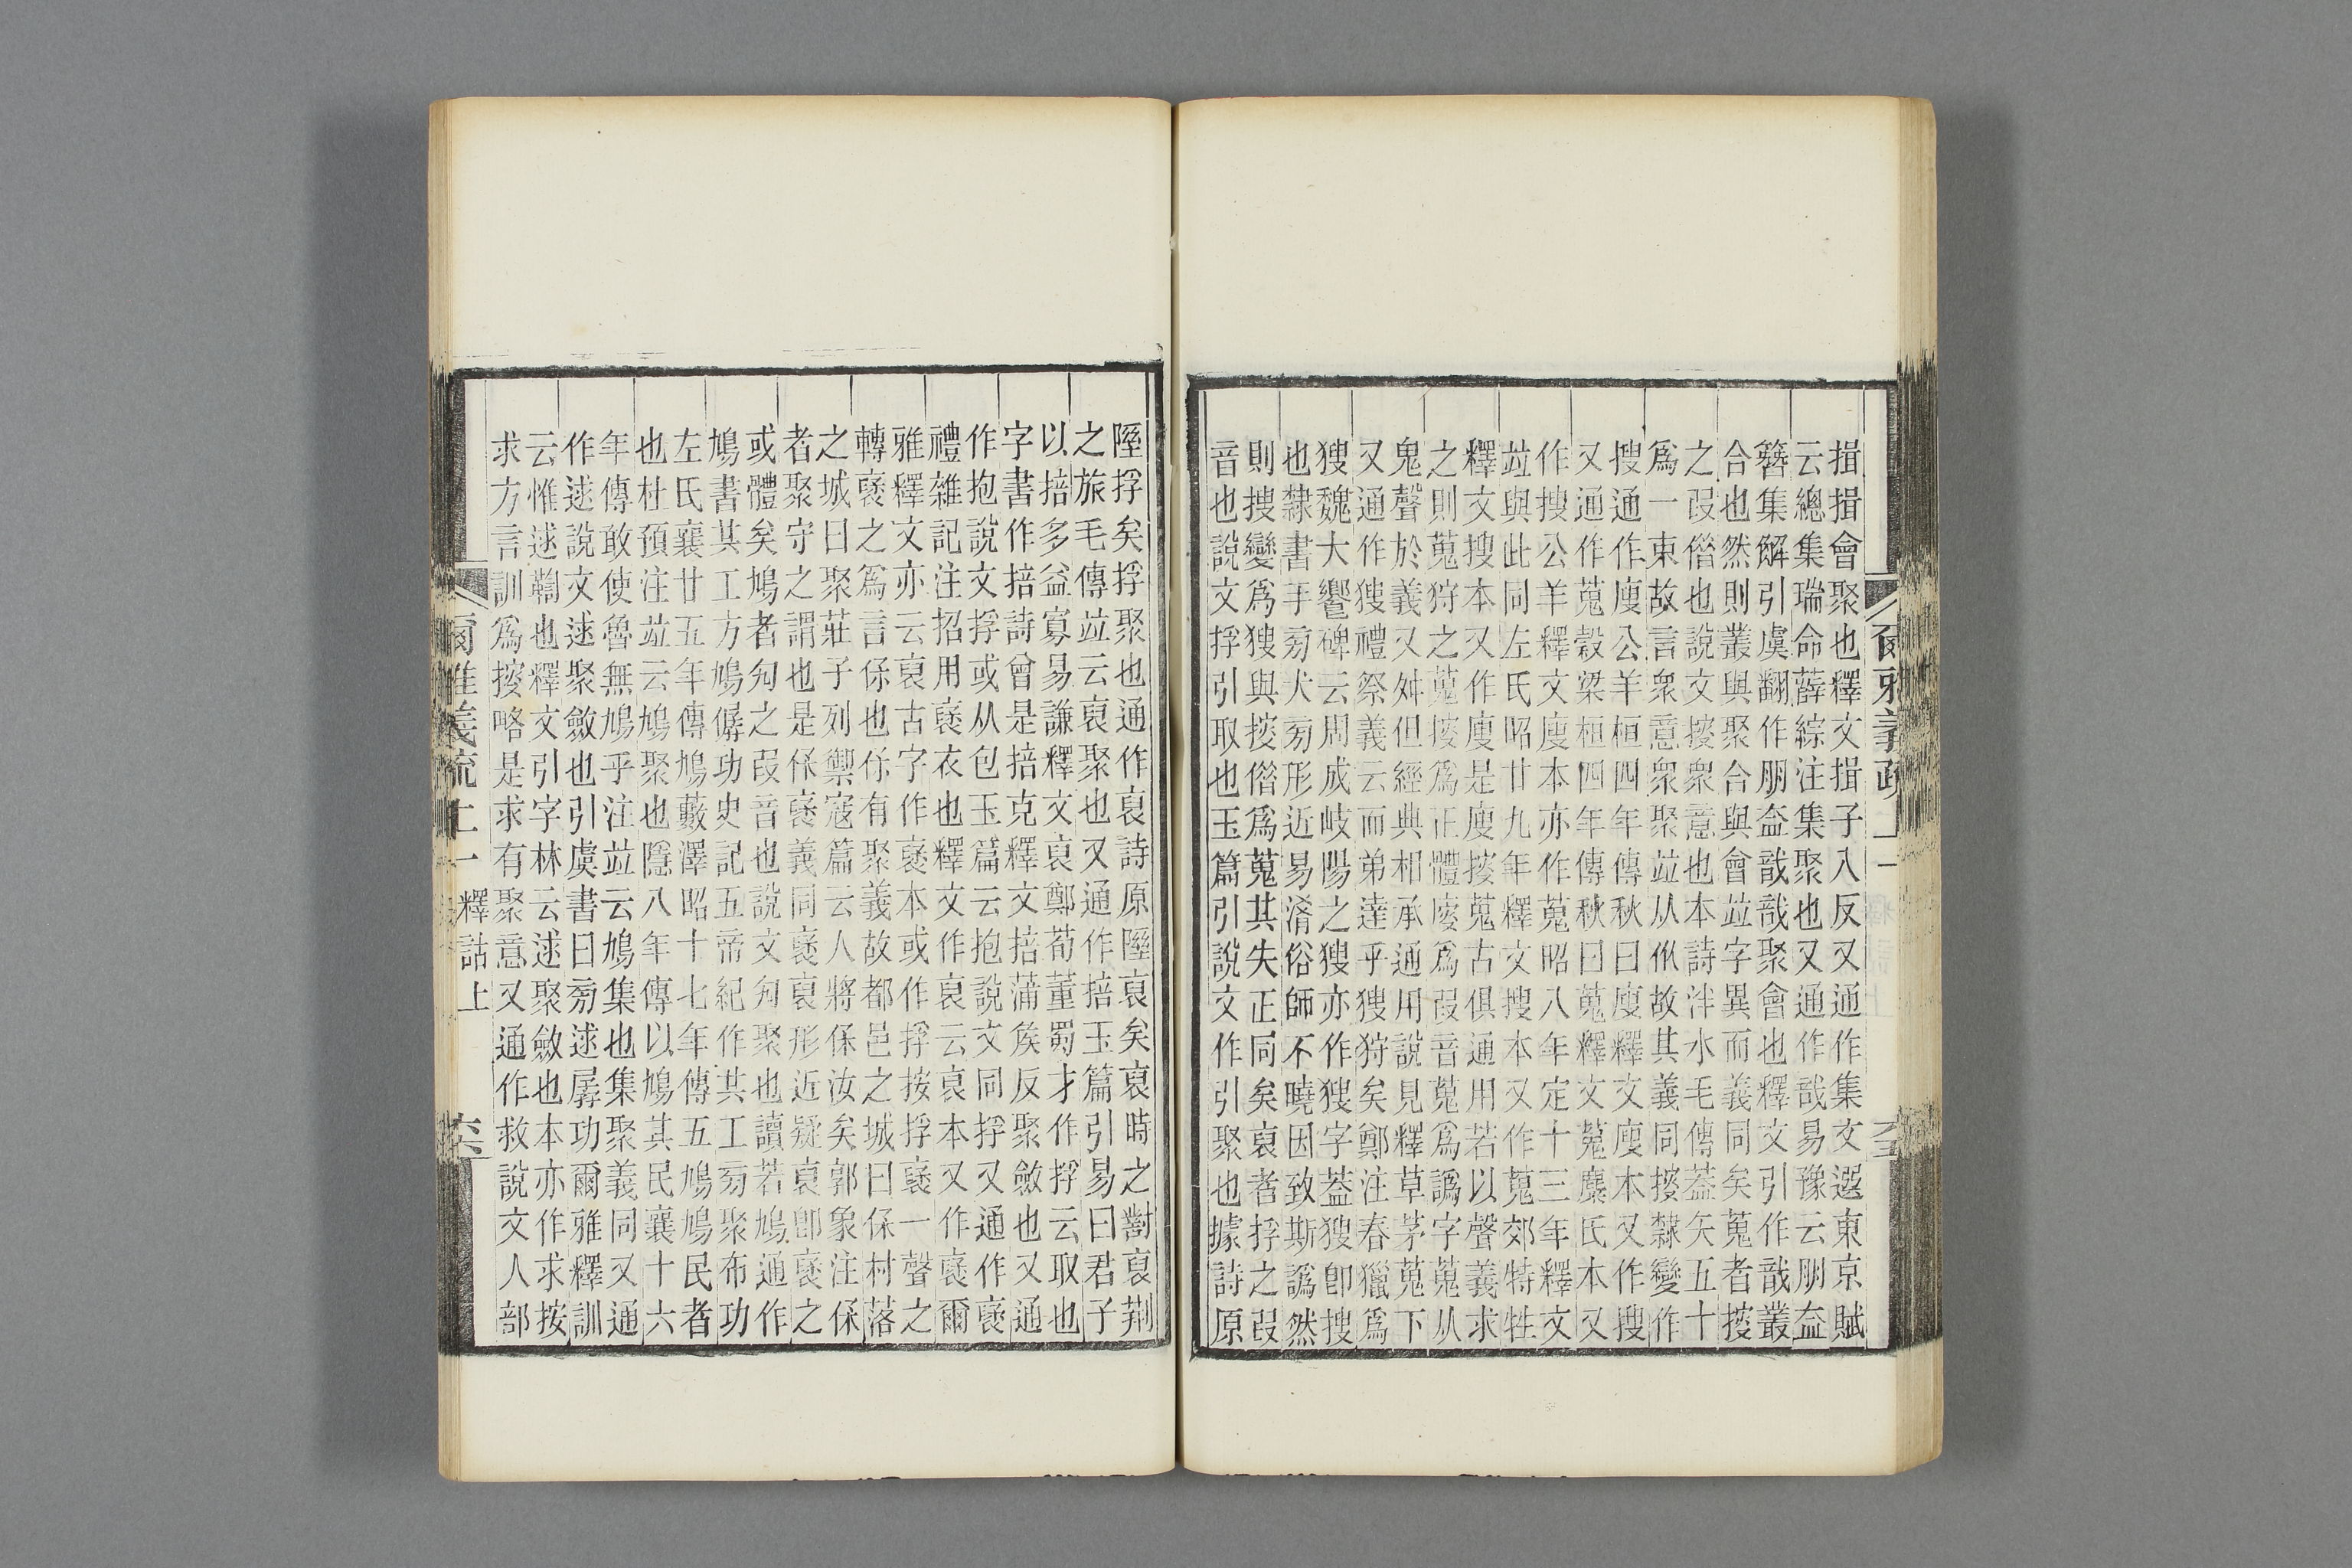 揖揖會聚也釋文揖子入反又通作集文選東京賦
云總集瑞命薛綜注集聚也又通作戠易豫云朋盍
簪集解引虞翻作朋盍戠戠聚會也釋文引作戠叢
合也然則叢與聚合與會竝字異而義同矣蒐者按
之叚偕也說文按眾意也本詩泮水毛傳葢矢五十
爲一束故言眾意眾聚竝从㐺故其義同按隸變作
搜通作廋公羊桓四年傳秋曰廋釋文廋本又作搜
又通作蒐穀梁桓四年傳秋曰蒐釋文蒐麋氏本又
作搜公羊釋文廋本亦作蒐昭八年定十三年釋文
竝與此同左氏昭廿九年釋文搜本又作蒐郊特牲
釋文搜本又作廋是廋按蒐古俱通用若以聲義求
之則蒐狩之蒐按爲正體廋爲叚音蒐爲譌字蒐从
鬼聲於義又舛但經典相承通用說見釋草茅蒐下
又通作獀禮祭義云而弟達乎獀狩矣鄭注春獵爲
獀魏大饗碑云周成岐陽之獀亦作獀字葢獀卽搜
也隸書手㫄犬㫄形近易淆俗師不曉因致斯譌然
則搜變爲獀與按偕爲蒐其失正同矣裒者捊之叚
音也說文捊引取也玉篇引說文作引聚也據詩原
爾雅義疏 上一
釋詁上
隰捊矣捊聚也通作裒詩原隰裒矣裒時之對裒荆
之旅毛傳竝云裒聚也又通作掊玉篇引易曰君子
以掊多益寡易謙釋文裒鄭荀董蜀才作捊云取也
字書作掊詩曾是掊克釋文掊蒲矦反聚斂也又通
作抱說文捊或从包玉篇云抱說文同捊又通作襃
禮雜記注招用襃衣也釋文作裒云裒本又作襃爾
雅釋文亦云裒古字作襃本或作捊按捊襃一聲之
轉襃之爲言保也保有聚義故都邑之城曰保村落
之城曰聚莊子列禦寇篇云人將保汝矣郭象注保
者聚守之謂也是保襃義同襃裒形近疑裒卽襃之
或體矣鳩者勼之叚音也說文勼聚也讀若鳩通作
鳩書共工方鳩僝功史記五帝紀作共工㫄聚布功
左氏襄廿五年傳鳩藪澤昭十七年傳五鳩鳩民者
也杜預注竝云鳩聚也隱八年傳以鳩其民襄十六
年傳敢使魯無鳩乎注竝云鳩集也集聚義同又通
作逑說文逑聚斂也引虞書曰㫄逑孱功爾雅釋訓
云惟逑鞫也釋文引字林云逑聚斂也本亦作求按
求方言訓爲按略是求有聚意又通作救說文人部
爾雅義疏 上一 釋詁上